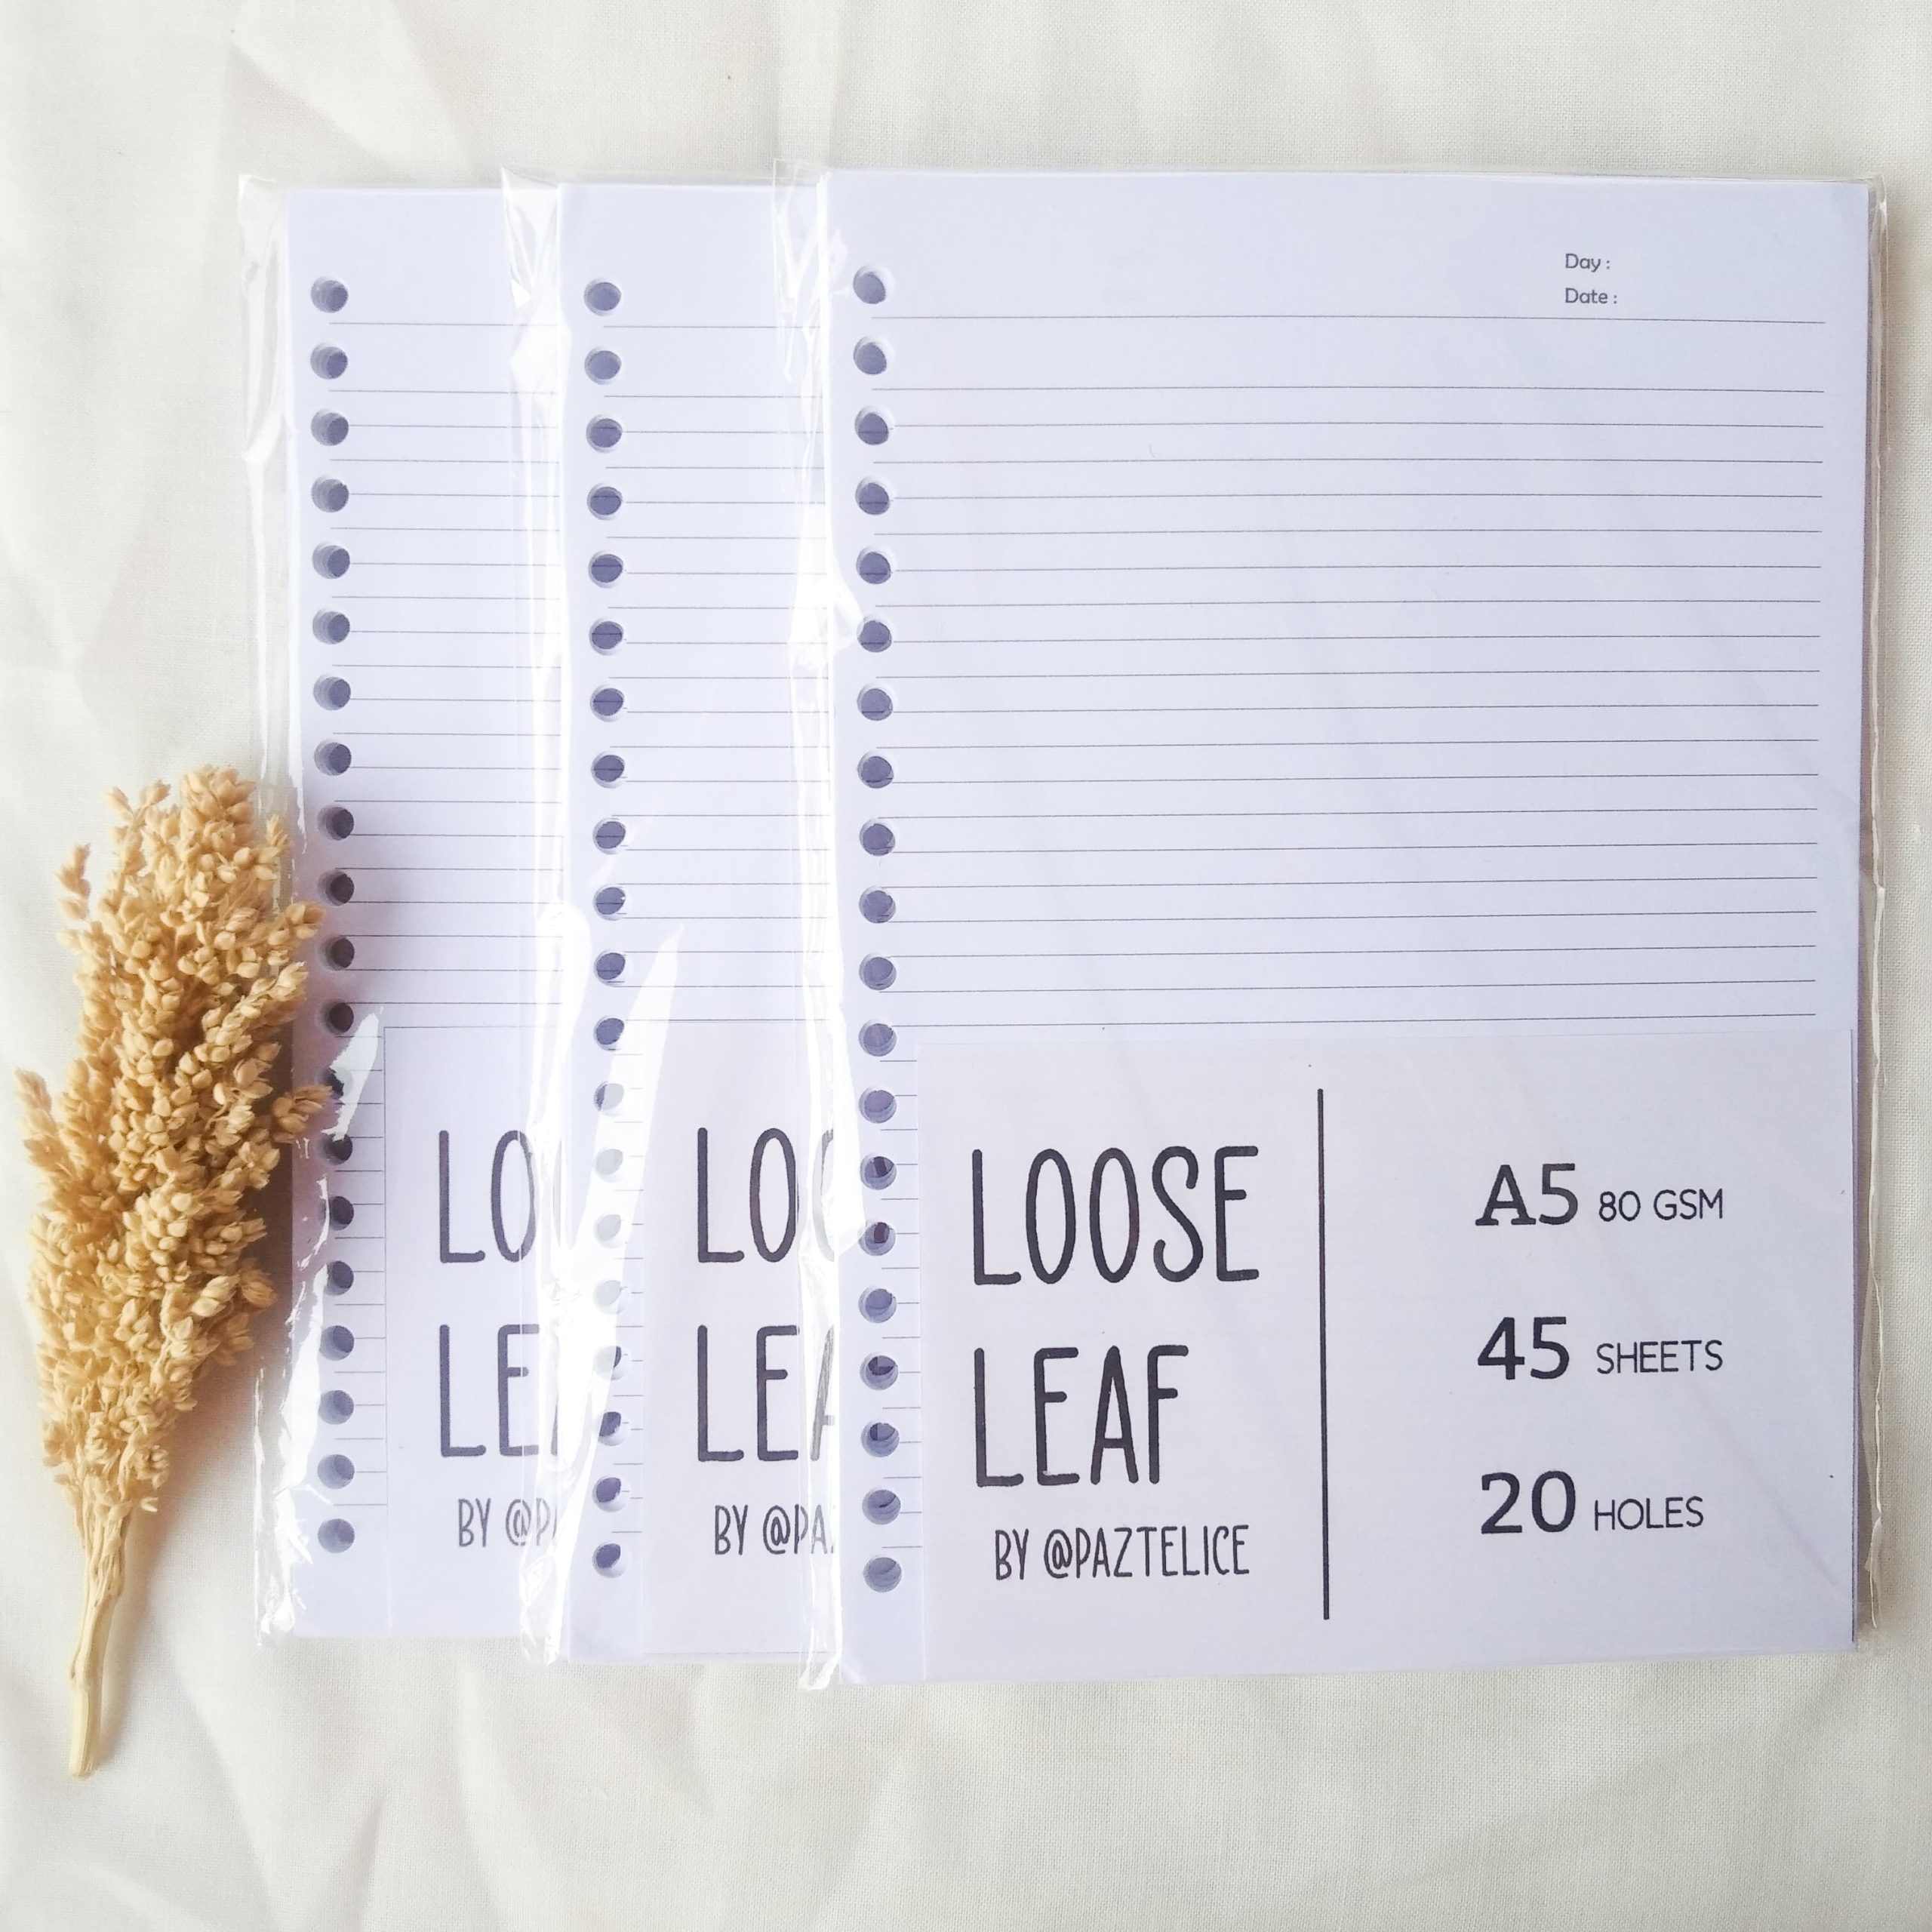 Day :
Date :
LOOSE
LEAF
BY @PAZTELICE
A5 80 GSM
45 SHEETS
20 HOLES
LOO
LEA
BY @PA
LO
LE
BY @P